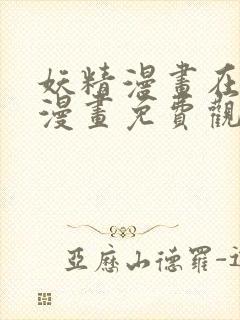 妖精漫畫在
漫畫免費觀
亞歷山德羅-